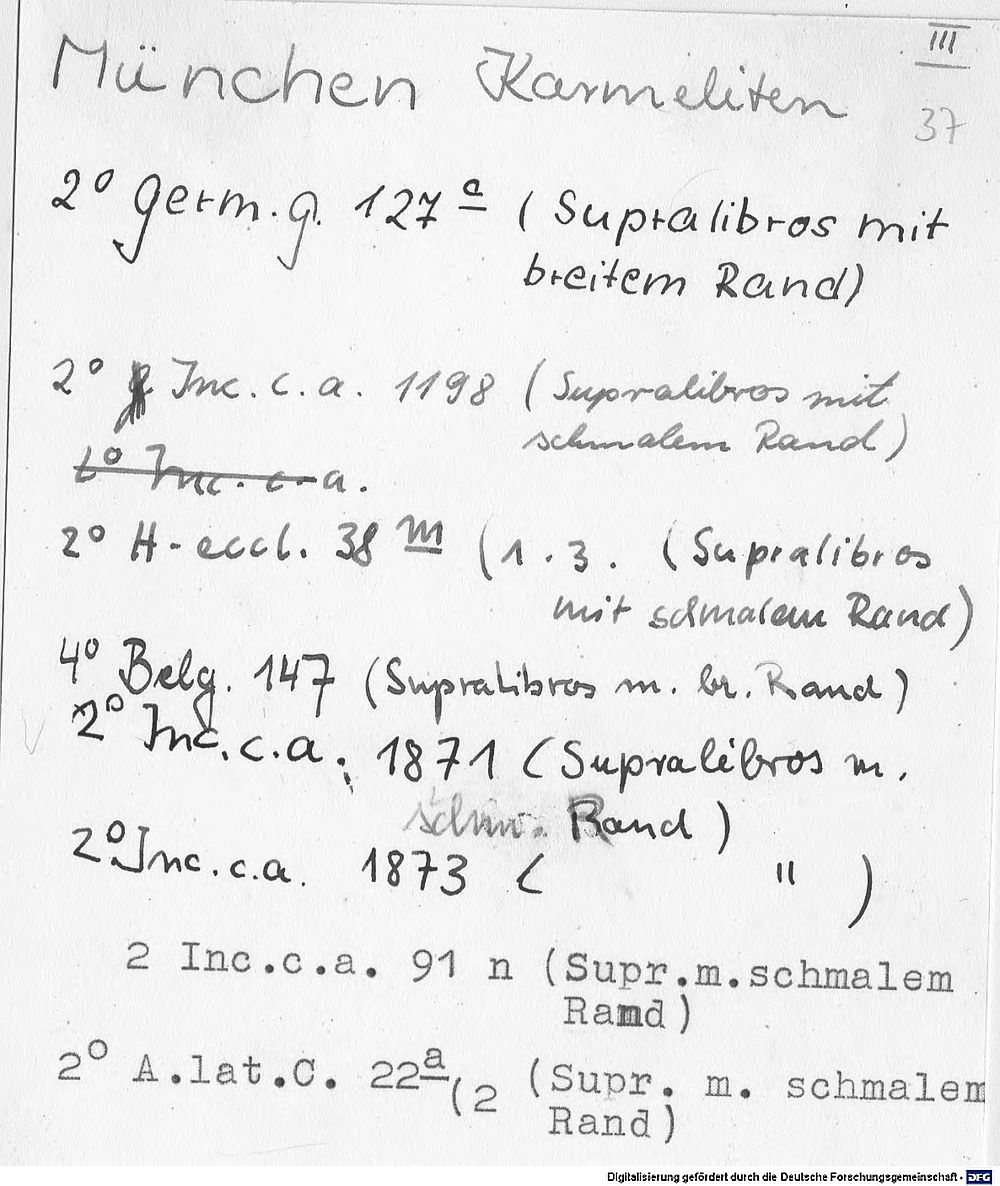 III
München Karmeliten
37
2° Germ.g. 127 c (Supralibros mit
breitem Rand)
2° Inc. c. a. 1198 (Supralibros mit
schmalem Rand)
2° Inc. c. a.
2° H-eccl. 38 m (1.3. (Supralibros
mit schmalem Rand)
4° Belg. 147 (Supralibros m. br. Rand)
2° Inc. c. a. 1871 (Supralibros m.
schm. Rand)
2° Inc. c. a. 1873 ( " )
2 Inc.c.a. 91 n (Supr.m.schmalem
Rand)
2° A.lat.C. 22a(2 (Supr. m. schmalem
Rand)
Digitalisierung gefördert durch die Deutsche Forschungsgemeinschaft - DFG